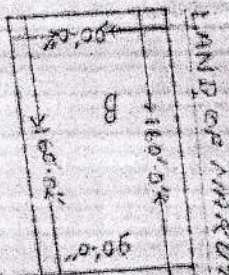 LAND OF
90'-0"
B
160'-0"
160'-0"
90'-0"